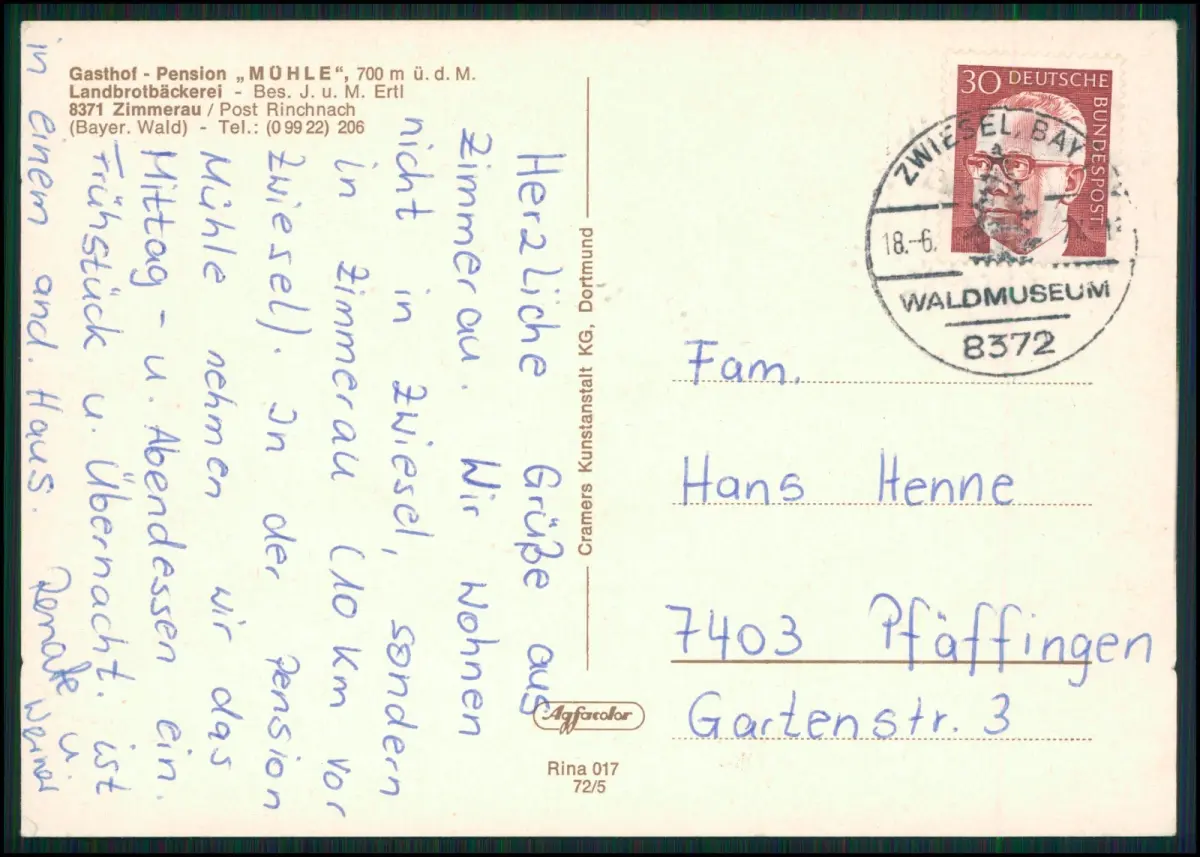 Gasthof - Pension „MÜHLE", 700 m ü. d. M.
Landbrotbäckerei - Bes. J. u. M. Ertl
8371 Zimmerau / Post Rinchnach
(Bayer. Wald) - Tel.: (0 99 22) 206
Herzliche Grüße aus
Zimmerau. Wir wohnen
nicht in Zwiesel, sondern
in Zimmerau (10 km vor
Zwiesel). In der Pension
Mühle nehmen wir das
Mittag- u. Abendessen ein.
Frühstück u. Übernacht. ist
in einem and. Haus.
Renate u.
Werner
Cramers Kunstanstalt KG, Dortmund
Agfacolor
Rina 017
72/5
30 DEUTSCHE
BUNDESPOST
ZWIESEL, BAY
18.-6.
WALDMUSEUM
8372
Fam.
Hans Henne
7403 Pfäffingen
Gartenstr. 3